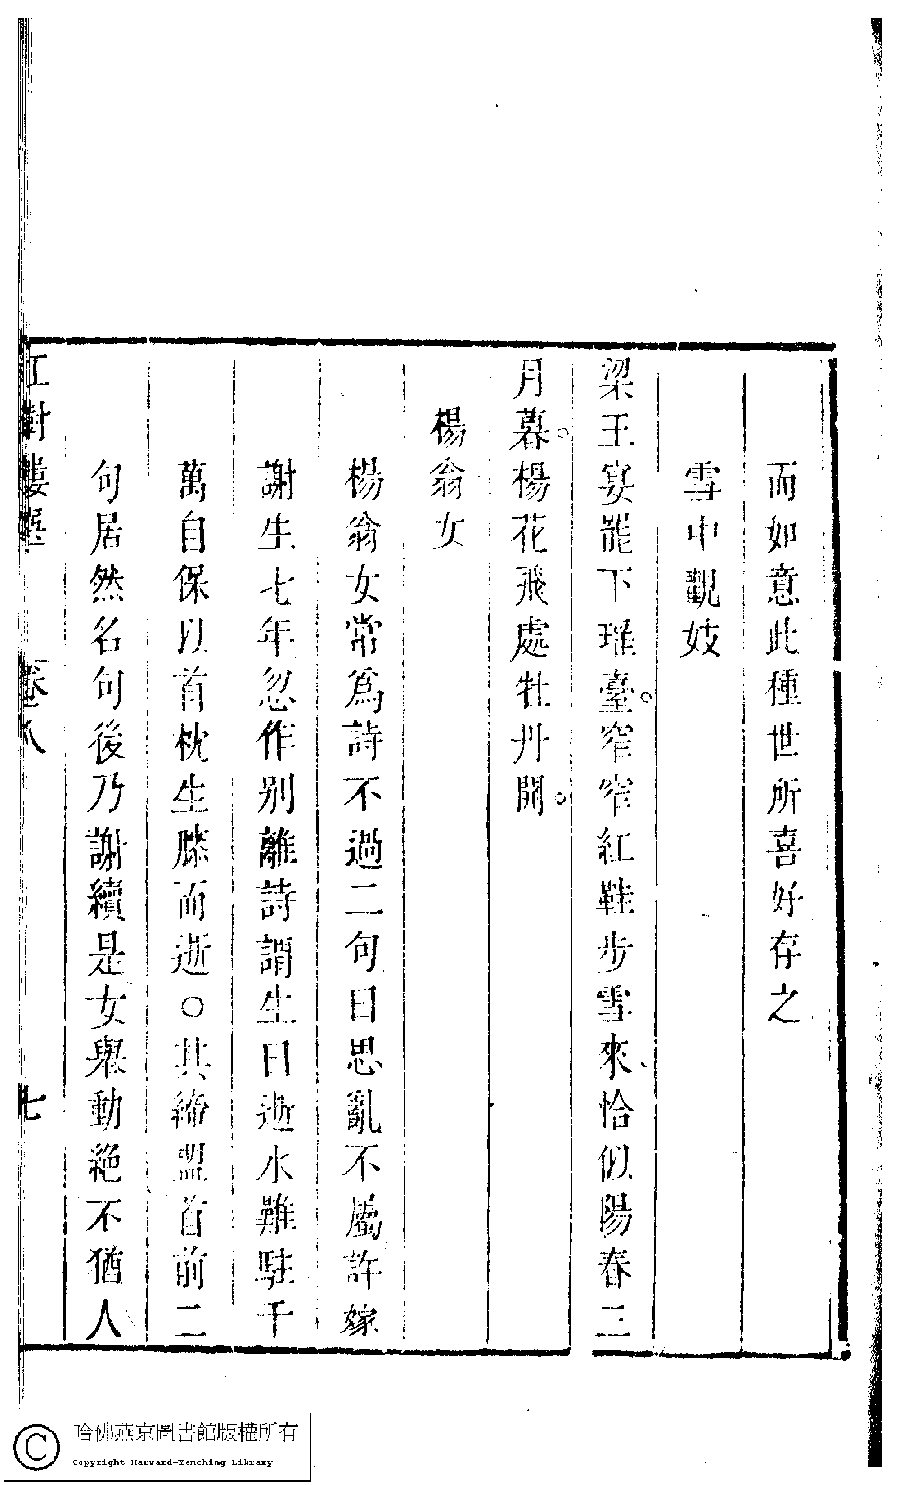 而如意此種世所喜好存之
雪中觀妓
梁王宴罷下瑤臺。窄窄紅鞋步雪來、恰似陽春三
月暮。楊花飛處牡丹開。
楊翁女
楊翁女常爲詩不過二句曰思亂不屬許嫁
謝生七年忽作別離詩謂生曰逝水難駐千
萬自保以首枕生膝而逝○其締盟首前二
句居然名句後乃謝續是女舉動絶不猶人
卷八
七
哈佛燕京圖書館版權所有
Copyright Harvard-Yenching Library